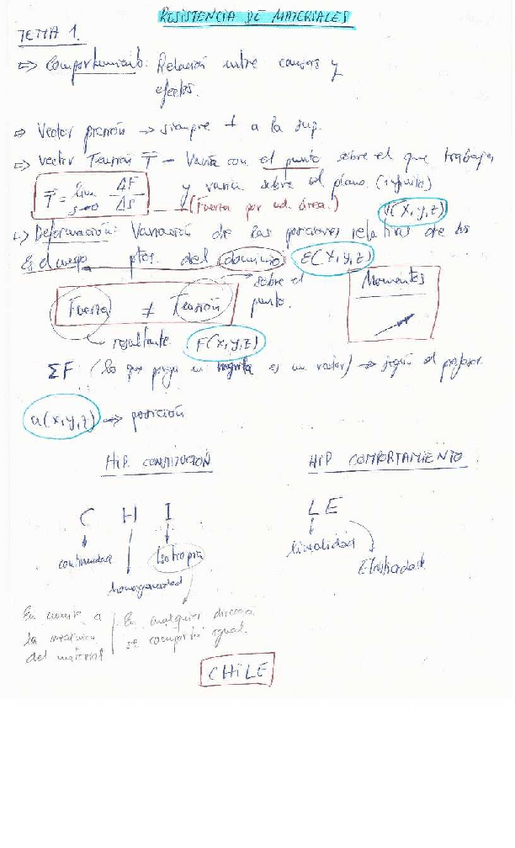 RESISTENCIA DE MATERIALES
TEMA 1.
=> Comportamiento: Relación entre causas y
efectos.
=> Vector presión → siempre ⊥ a la sup.
=> Vector Tensión T̅ - Varía con el punto sobre el que trabajas
T̅ = lim ΔF/Δs s→0
y varía sobre el plano. (infinito)
(Fuerza por ud. área.)
(x,y,z)
Deformación: Variación de las posiciones relativas de los
ptos. del dominio ε(x,y,z)
sobre el
punto.
Fuerza ≠ Tensión
Momentos
resultante F(x,y,z)
ΣF (lo que ponga en negrita es un vector) → según el profesor
u(x,y,z) → posición
HIP. CONSTITUCIÓN
HIP COMPORTAMIENTO
C H I
L E
continuidad
homogeneidad
Isotropía
linealidad
Elasticidad
En cuanto a
del material
En cualquier direcc.
se comporta igual.
CHILE